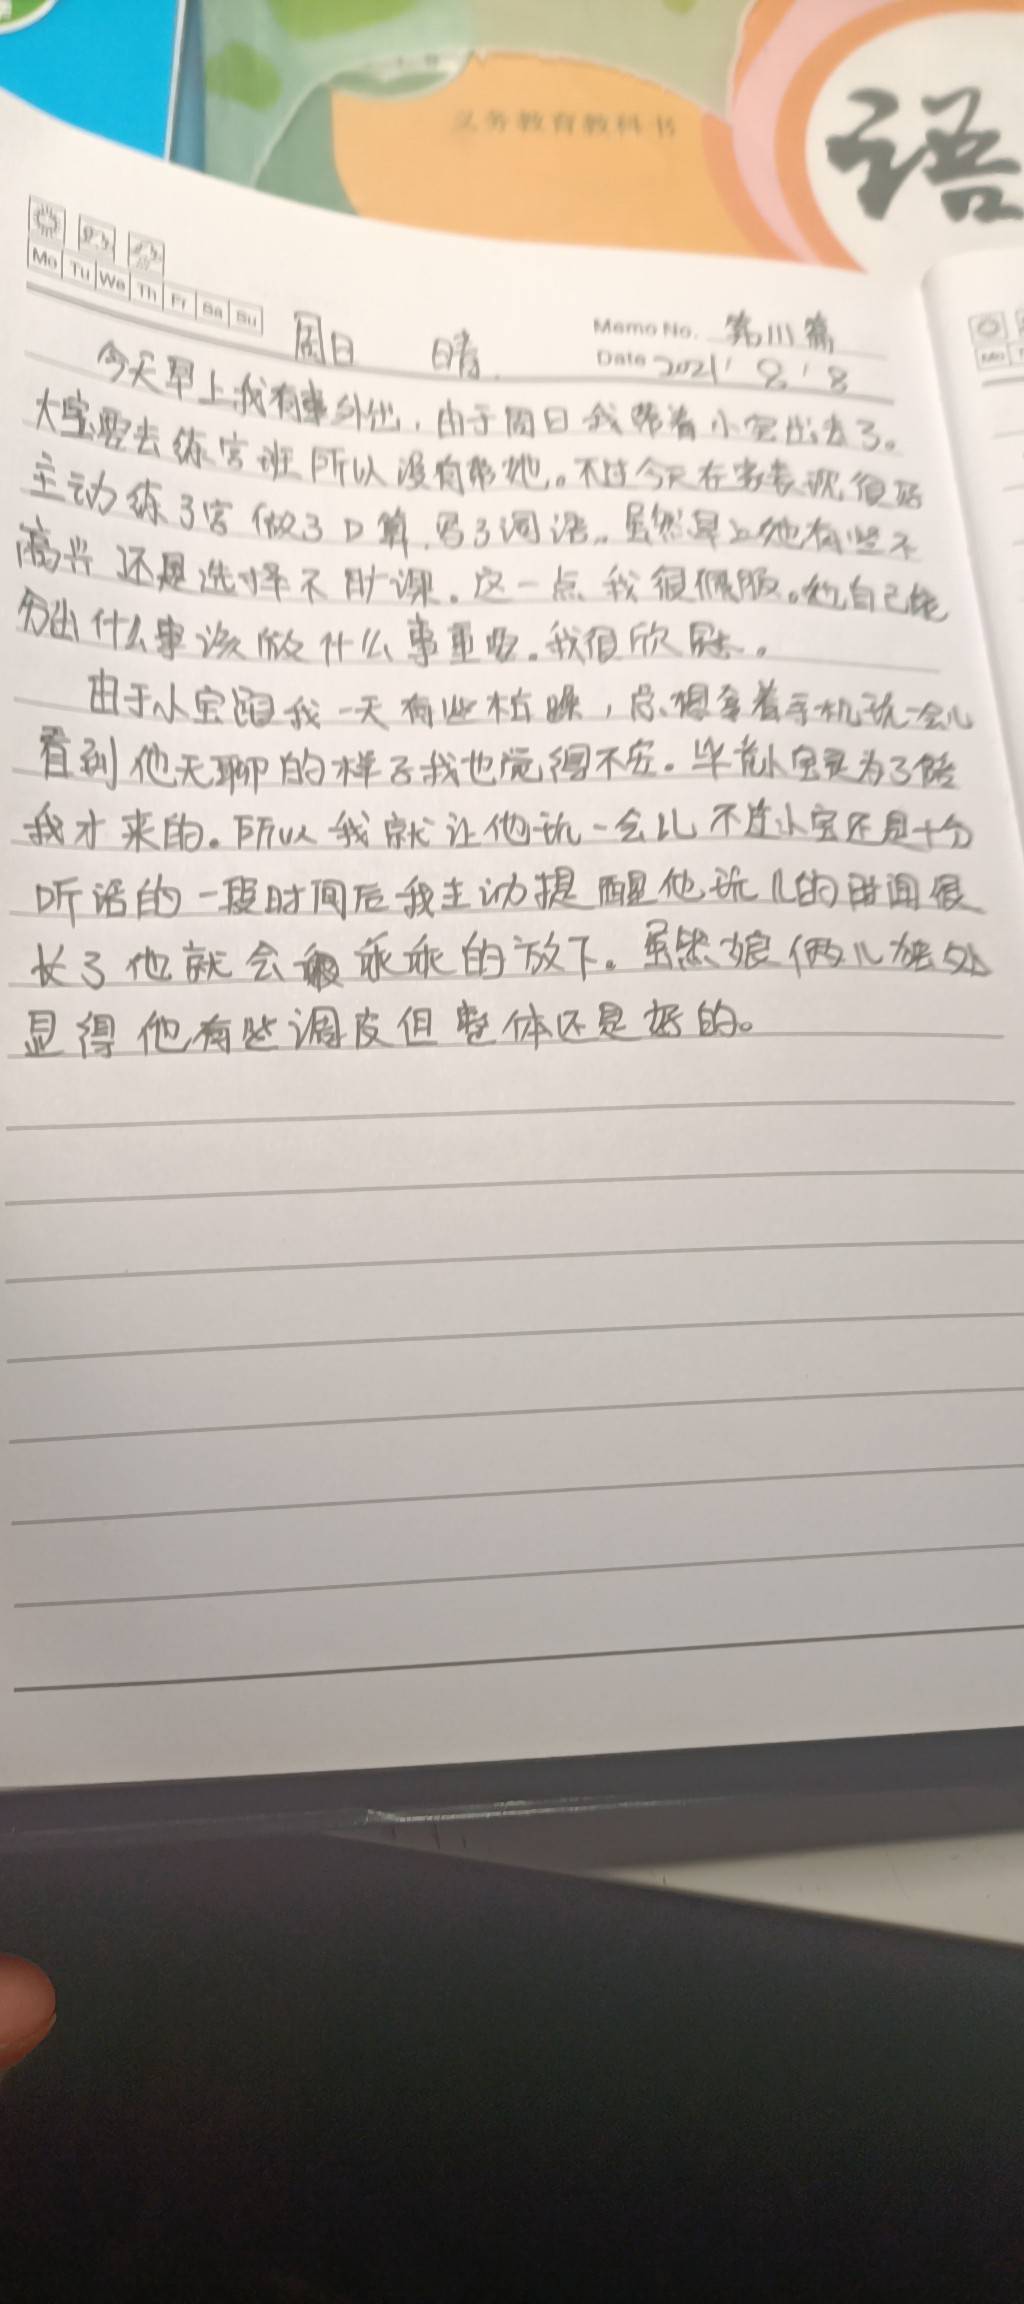 义务教育教科书
语
Mo Tu We Th Fr Sa Su
Memo No. 第111篇
周日 晴
Date 2021 8 8
今天早上我有事外出，由于周日我带着小宝出去了。
大宝要去练字班所以没有带她。不过今天在家表现很好
主动练了字做了口算，写了词语。虽然早上她有些不
高兴还是选择不旷课。这一点我很佩服。她自己能
分出什么事该做什么事重要。我很欣慰。
由于小宝跟我一天有些枯燥，总想拿着手机玩一会儿
看到他无聊的样子我也觉得不安。毕竟小宝是为了陪
我才来的。所以我就让他玩一会儿不过小宝还是十分
听话的一段时间后我主动提醒他玩儿的时间很
长了他就会乖乖的放下。虽然娘俩儿独处
显得他有些调皮但整体还是好的。